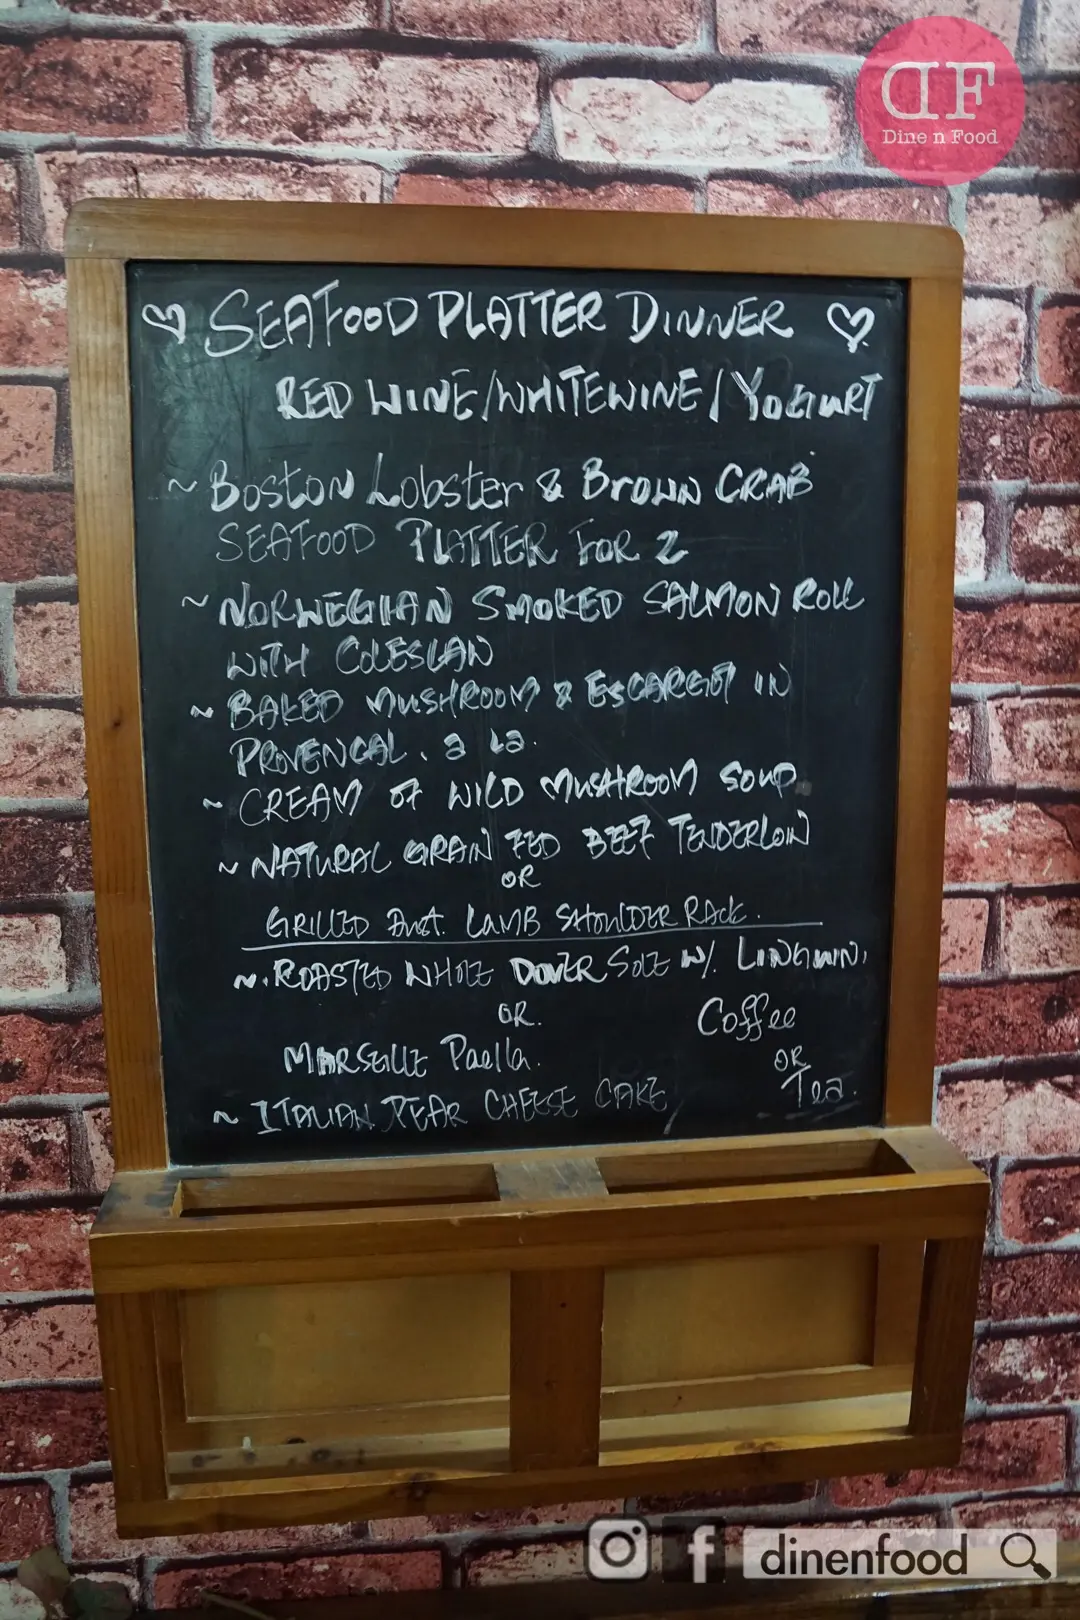 DF
Dine n Food
SEAFOOD PLATTER DINNER
RED WINE/WHITEWINE/YOGURT
~ BOSTON Lobster & BROWN CRAB
SEAFOOD PLATTER FOR 2
~ NORWEGIAN SMOKED SALMON ROLL
WITH COLESLAN
~ BAKED MUSHROOM & ESCARGOT IN
PROVENCAL. a La.
~ CREAM OF WILD MUSHROOM SOUP
~ NATURAL GRAIN FED BEEF TENDERLOIN
OR
GRILLED LAMB SHOULDER RACK.
~.ROASTED WHOLE DOVER SOLE W/. LINGUINI,
OR.
MARSEILLE Paella.
Coffee
OR
Tea.
~ ITALIAN PEAR CHEESE CAKE
f dinenfood